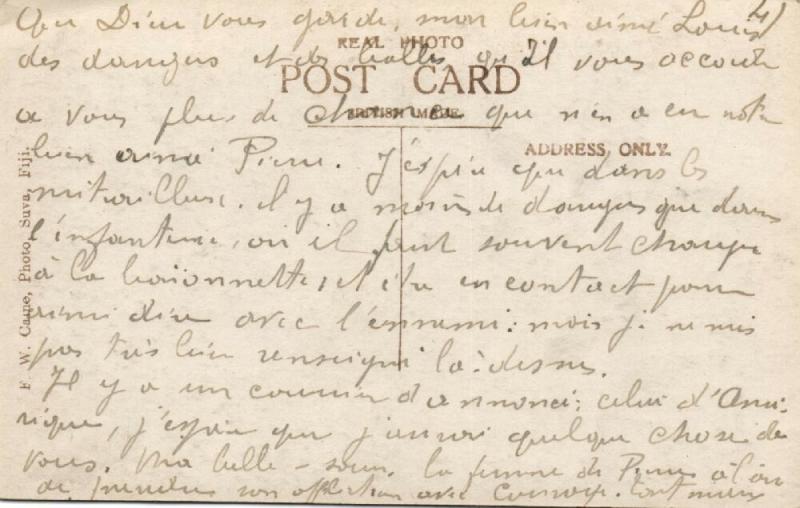 4)
Que Dieu vous garde, mon bien aimé Louis
REAL PHOTO
des dangers et des balles qu'Il vous accorde
POST CARD
à vous plus de chances que n'en a eu notre
BRITISH MADE.
ADDRESS ONLY.
bien aimé Pierre. J'espère que dans les
mitrailleuse. il y a moins de dangers que dans
l'infanterie, où il faut souvent charger
à la baïonnette, et être en contact pour
ainsi dire avec l'ennemi: mais je ne suis
pas très bien renseigné là-dessus.
Il y a un courrier d'annoncé; celui d'Amé-
rique, j'espère que j'aurai quelque chose de
vous. Ma belle-soeur la femme de Pierre à l'air
de prendre son affliction avec courage. tout
F. W. Caine, Photo, Suva, Fiji.